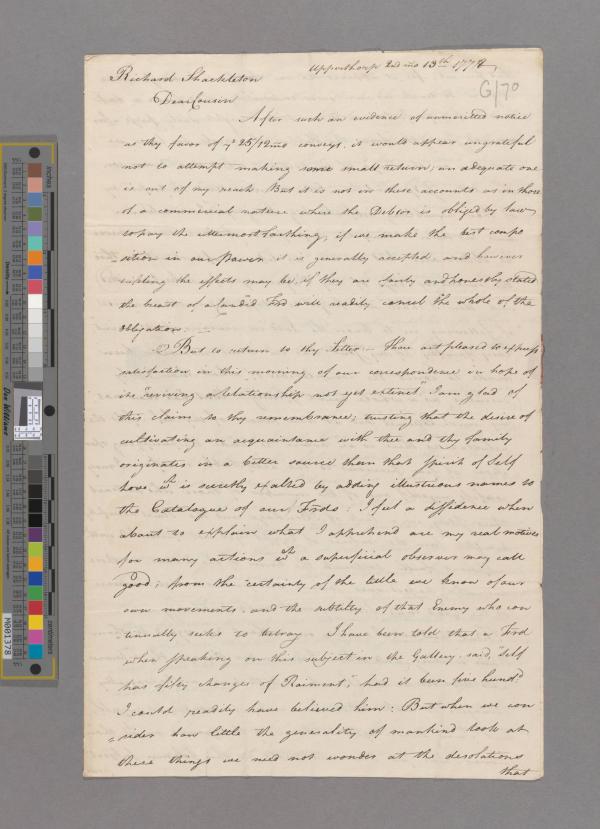 Upperthorp 2nd mo 13th 1774
G/70
Richard Shackleton
Dear Cousin
After such an evidence of unmerited notice
as thy favor of ye 25/12mo conveys, it would appear ungrateful
not to attempt making some small return; an adequate one
is out of my reach But it is not in these accounts as in those
of a commercial nature where the Debtor is obliged by law
to pay the uttermost farthing, if we make the best compo
sition in our Power it is generally accepted, and however
the effects may be, if they are fairly and honestly stated
the heart of a Candid Frd will readily cancel the whole of the
obligation. —
But to return to thy Letter — Thou art pleased to express
satisfaction in this morning of our correspondence in hope of
its "reviving a relationship not yet extinct" I am glad of
this claim to thy remembrance; trusting that the desire of
cultivating an acquaintance with thee and thy family
originates in a better source than that Spirit of Self
love wch is secretly exalted by adding illustrious names to
the Catalogue of our Frds; I feel a diffidence when
about to explain what I apprehend are my real motives
for many actions wch a superficial observer may call
good; from the certainty of the little we know of our
own movements, and the subtilty of that Enemy who con
tinually seeks to betray I have been told that a Frd
when speaking on this subject in the Gallery said, "Self
has fifty changes of Raiment"; had it been five hundd
I could readily have believed him: But when we con
=sider how little the generality of mankind look at
these things we need not wonder at the desolations
that
inches
centimeters
Don Williams
M001378